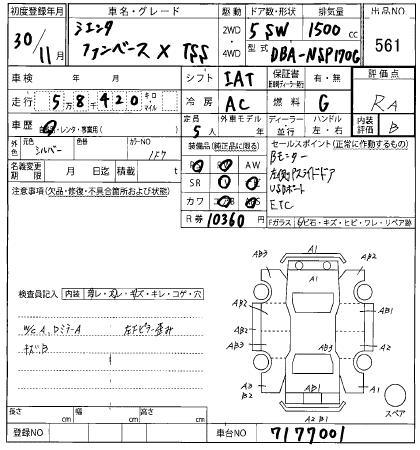 初度登録年月 車名・グレード 駆動 ドア数・形状 排気量 出品NO
30/11月 シエンタ 2WD 5 SW 1500 cc 561
ファンベース X TSS 4WD 型式 DBA-NSP170G
車検 年 月 シフト IAT 保証書 有・無 評価点
走行 58420 キロ・マイル 冷房 AC 燃料 G RA
車歴 自家・レンタ・事業用( ) 定員 5人 外車モデル ディーラー・並行 ハンドル 左・右 内装評価 B
外色 元色 シルバー 色替 カラーNO 1F7 装備品 (純正品に限る) セールスポイント (正常に作動するもの)
名義変更期限 月 日 積載 t AW Bモニター
注意事項 (欠品・修復・不具合箇所および状態) SR 左側Pスライドドア
カワ USBポート
R券 10360 円 ETC
Fガラス 飛石・キズ・ヒビ・ワレ・リペア跡
AB3 A1 AB2
A1
検査員記入 内装 スレ・キズ・キレ・コゲ・穴
AB2 AB2
W/C A、DミラーA
AB3 AB3 A2
キズB
A3 B2 AB1 A1
A2 B1 スペア
長さ cm 幅 cm 高さ cm
登録NO 車台NO 7177001